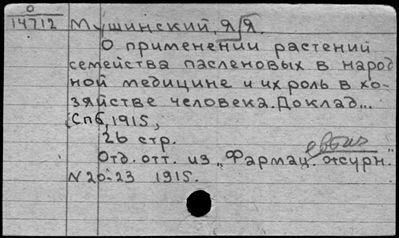 О
14712
Мушинский, Я Я.
О применении растений
семейства пасленовых в народ
ной медицине и их роль в хо-
зяйстве человека. Доклад...
(Спб, 1915,
26 стр.
Отд. отт. из „Фармац. журн.
N 20-23 1915.